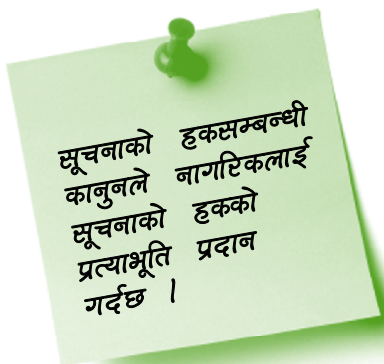 सूचनाको हकसम्बन्धी
कानुनले नागरिकलाई
सूचनाको हकको
प्रत्याभूति प्रदान
गर्दछ ।